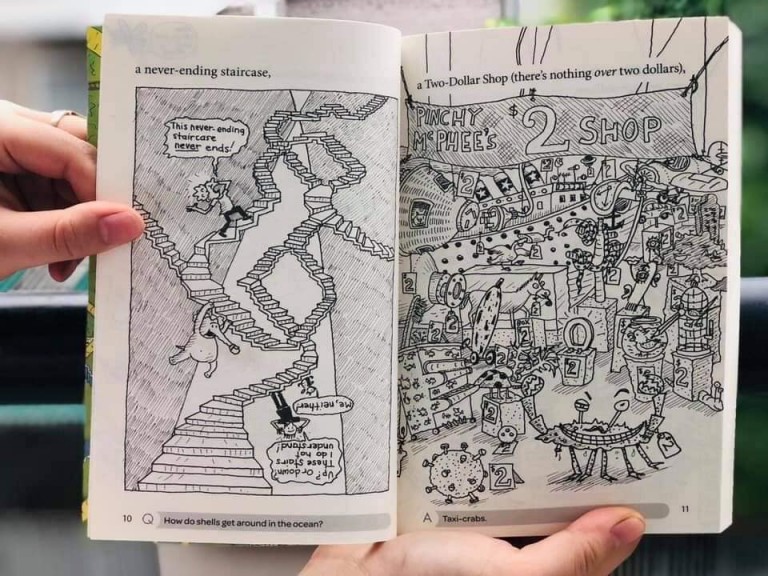 a never-ending staircase,
This never-ending
staircase
never ends!
Up? Or down?
These stairs
I do not
understand!
Me, neither!
10 Q How do shells get around in the ocean?
a Two-Dollar Shop (there's nothing over two dollars),
PINCHY
McPHEE'S
$2 SHOP
2
2
2
2
2
2
2
$2
A Taxi-crabs.
11